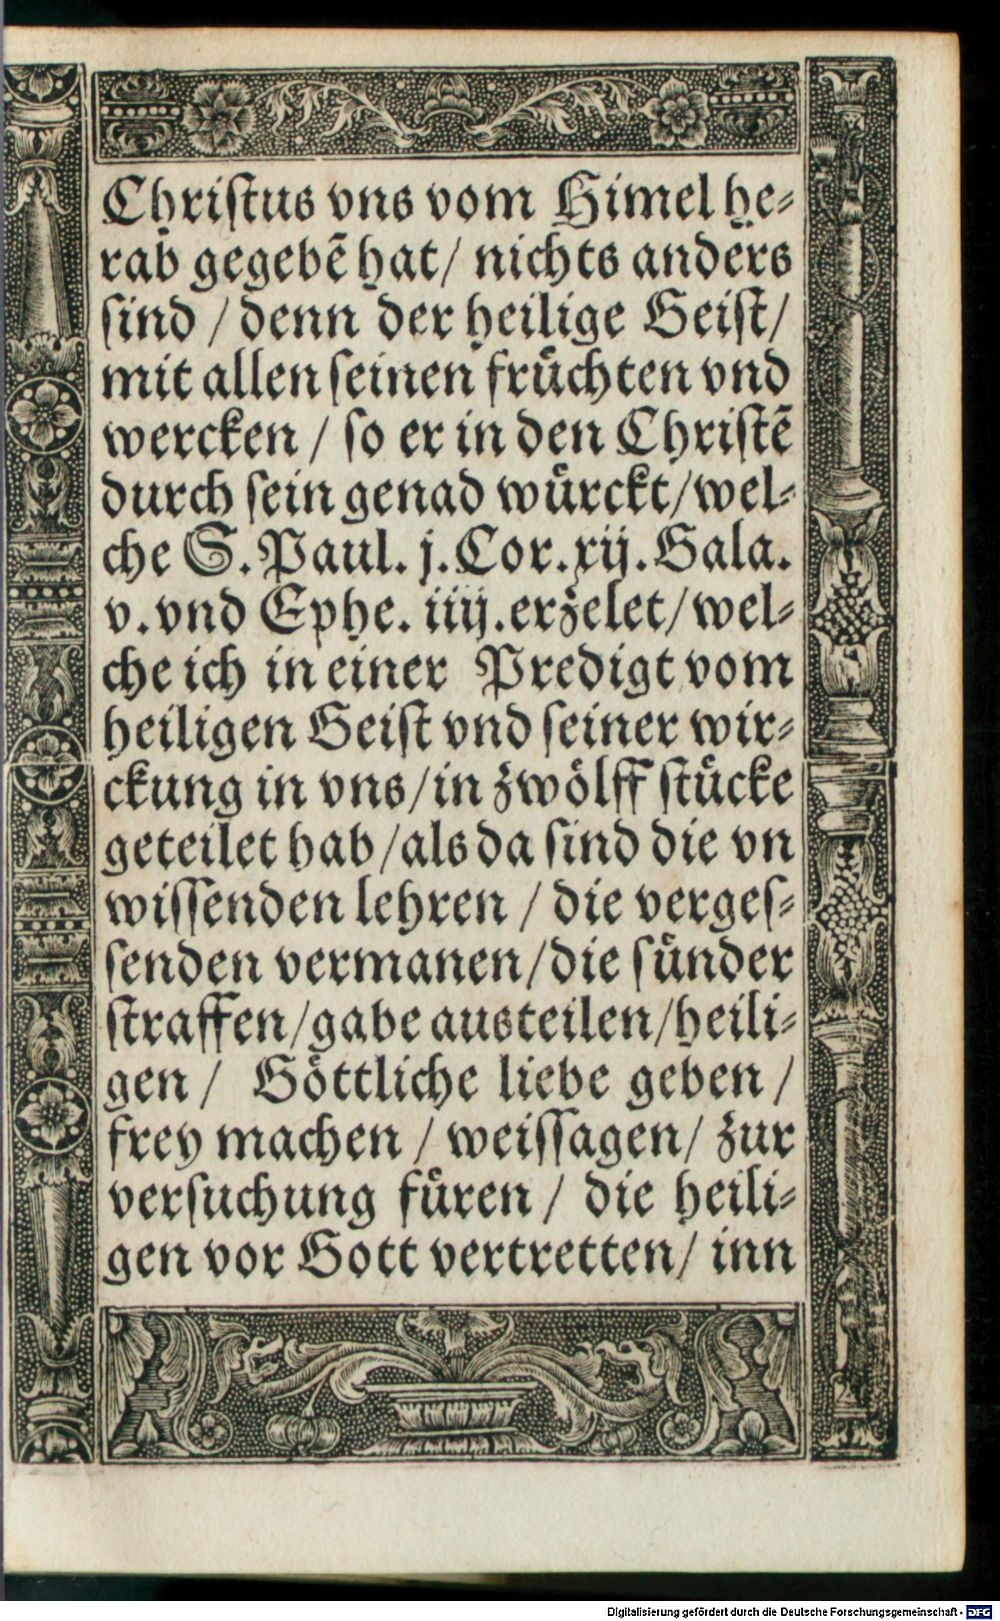 Chriſtus vns vom Himel he⸗
rab gegebẽ hat/ nichts anders
ſind / denn der heilige Geiſt/
mit allen ſeinen fruͤchten vnd
wercken / ſo er in den Chriſtẽ
durch ſein genad wuͤrckt/wel⸗
che S. Paul. j. Cor. xij. Gala.
v. vnd Ephe. iiij. erzelet/wel⸗
che ich in einer Predigt vom
heiligen Geiſt vnd ſeiner wir⸗
ckung in vns/in zwoͤlff ſtuͤcke
geteilet hab/als da ſind die vn
wiſſenden lehren / die vergeſ⸗
ſenden vermanen/die ſuͤnder
ſtraffen/gabe austeilen/heili⸗
gen / Goͤttliche liebe geben /
frey machen / weiſſagen/ zur
verſuchung fuͤren / die heili⸗
gen vor Gott vertretten/ inn
Digitalisierung gefördert durch die Deutsche Forschungsgemeinschaft - DFG